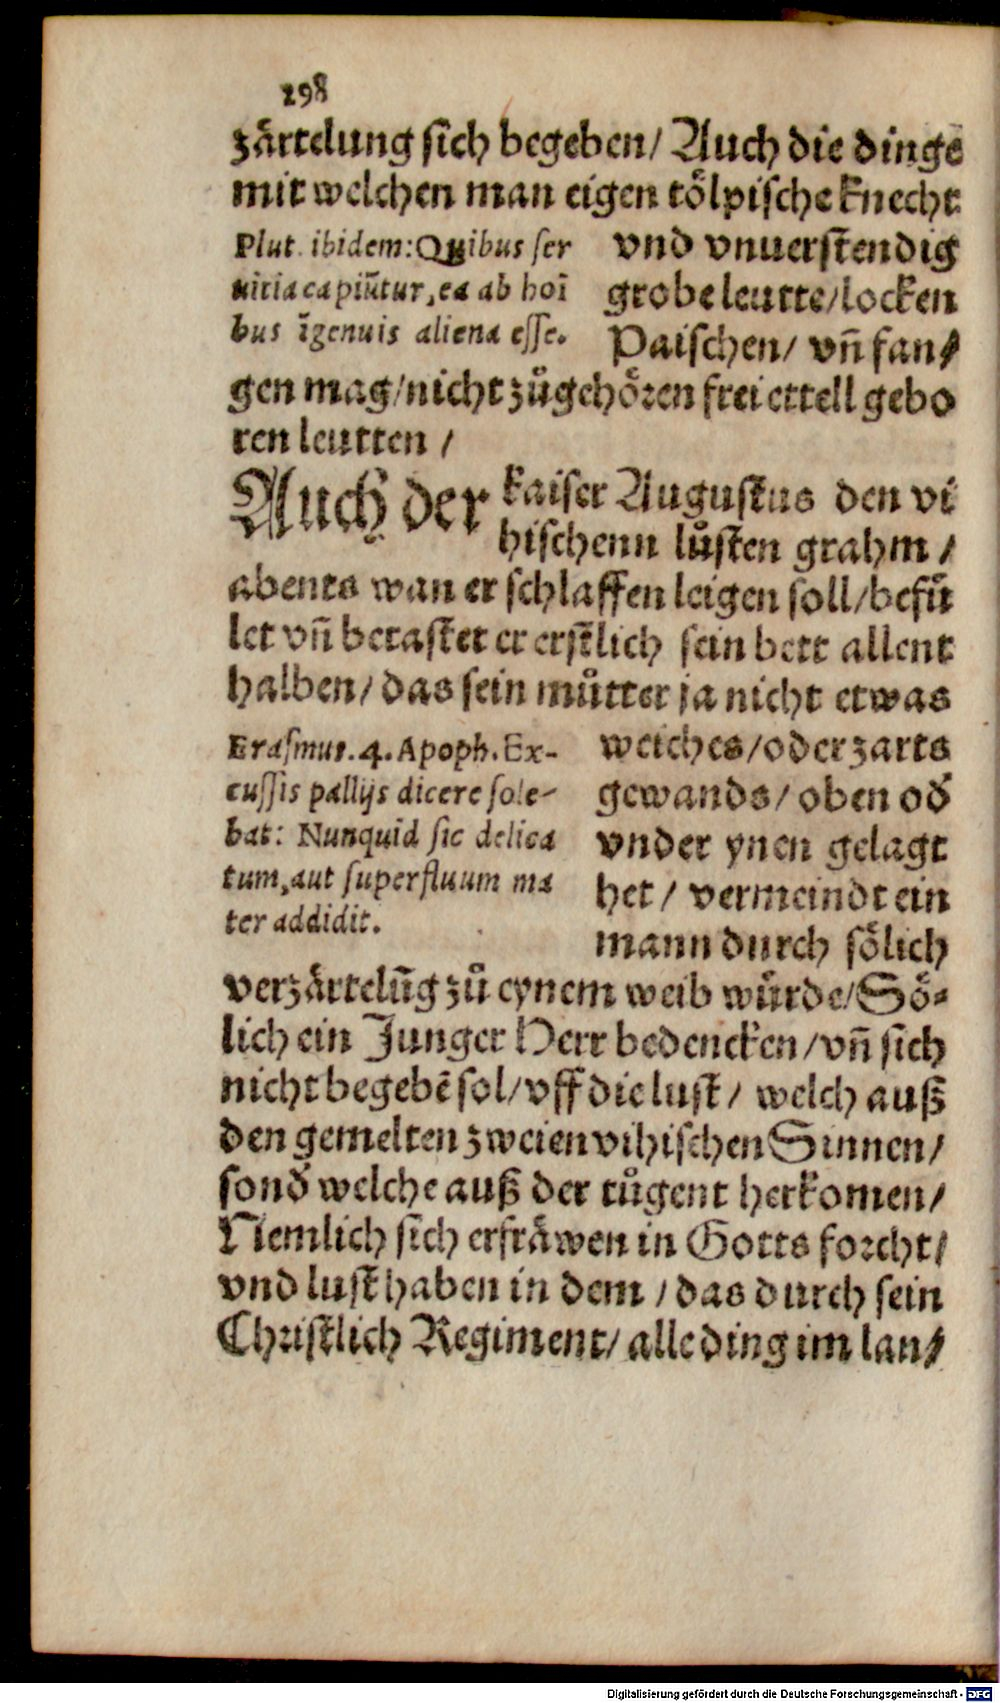 298
zärtelung sich begeben/ Auch die dinge
mit welchen man eigen tölpische knecht
Plut. ibidem: Quibus ser
uitia capiũtur, ea ab hoĩ
bus ĩgenuis aliena esse.
vnd vnuerstendig
grobe leutte/locken
Paischen/ vñ fan⸗
gen mag/nicht zůgehören frei ettell gebo
ren leutten /
Auch der kaiser Augustus den vi
hischenn lůsten grahm /
abents wan er schlaffen leigen soll/befü
let vñ betastet er erstlich sein bett allent
halben/ das sein můtter ja nicht etwas
Erasmus. 4. Apoph. Ex-
cussis pallijs dicere sole-
bat: Nunquid sic delica
tum, aut superfluum ma
ter addidit.
weiches/oder zarts
gewands/ oben od̛
vnder ynen gelagt
het/ vermeindt ein
mann durch sölich
verzärtelũg zů eynem weib würde/Sö⸗
lich ein Junger Herr bedencken/vñ sich
nicht begebẽ sol/vff die lust/ welch auß
den gemelten zweien vihischen Sinnen/
sond̛ welche auß der tůgent herkomen/
Nemlich sich erfräwen in Gotts forcht/
vnd lust haben in dem / das durch sein
Christlich Regiment/ alle ding im lan⸗
Digitalisierung gefördert durch die Deutsche Forschungsgemeinschaft - DFG